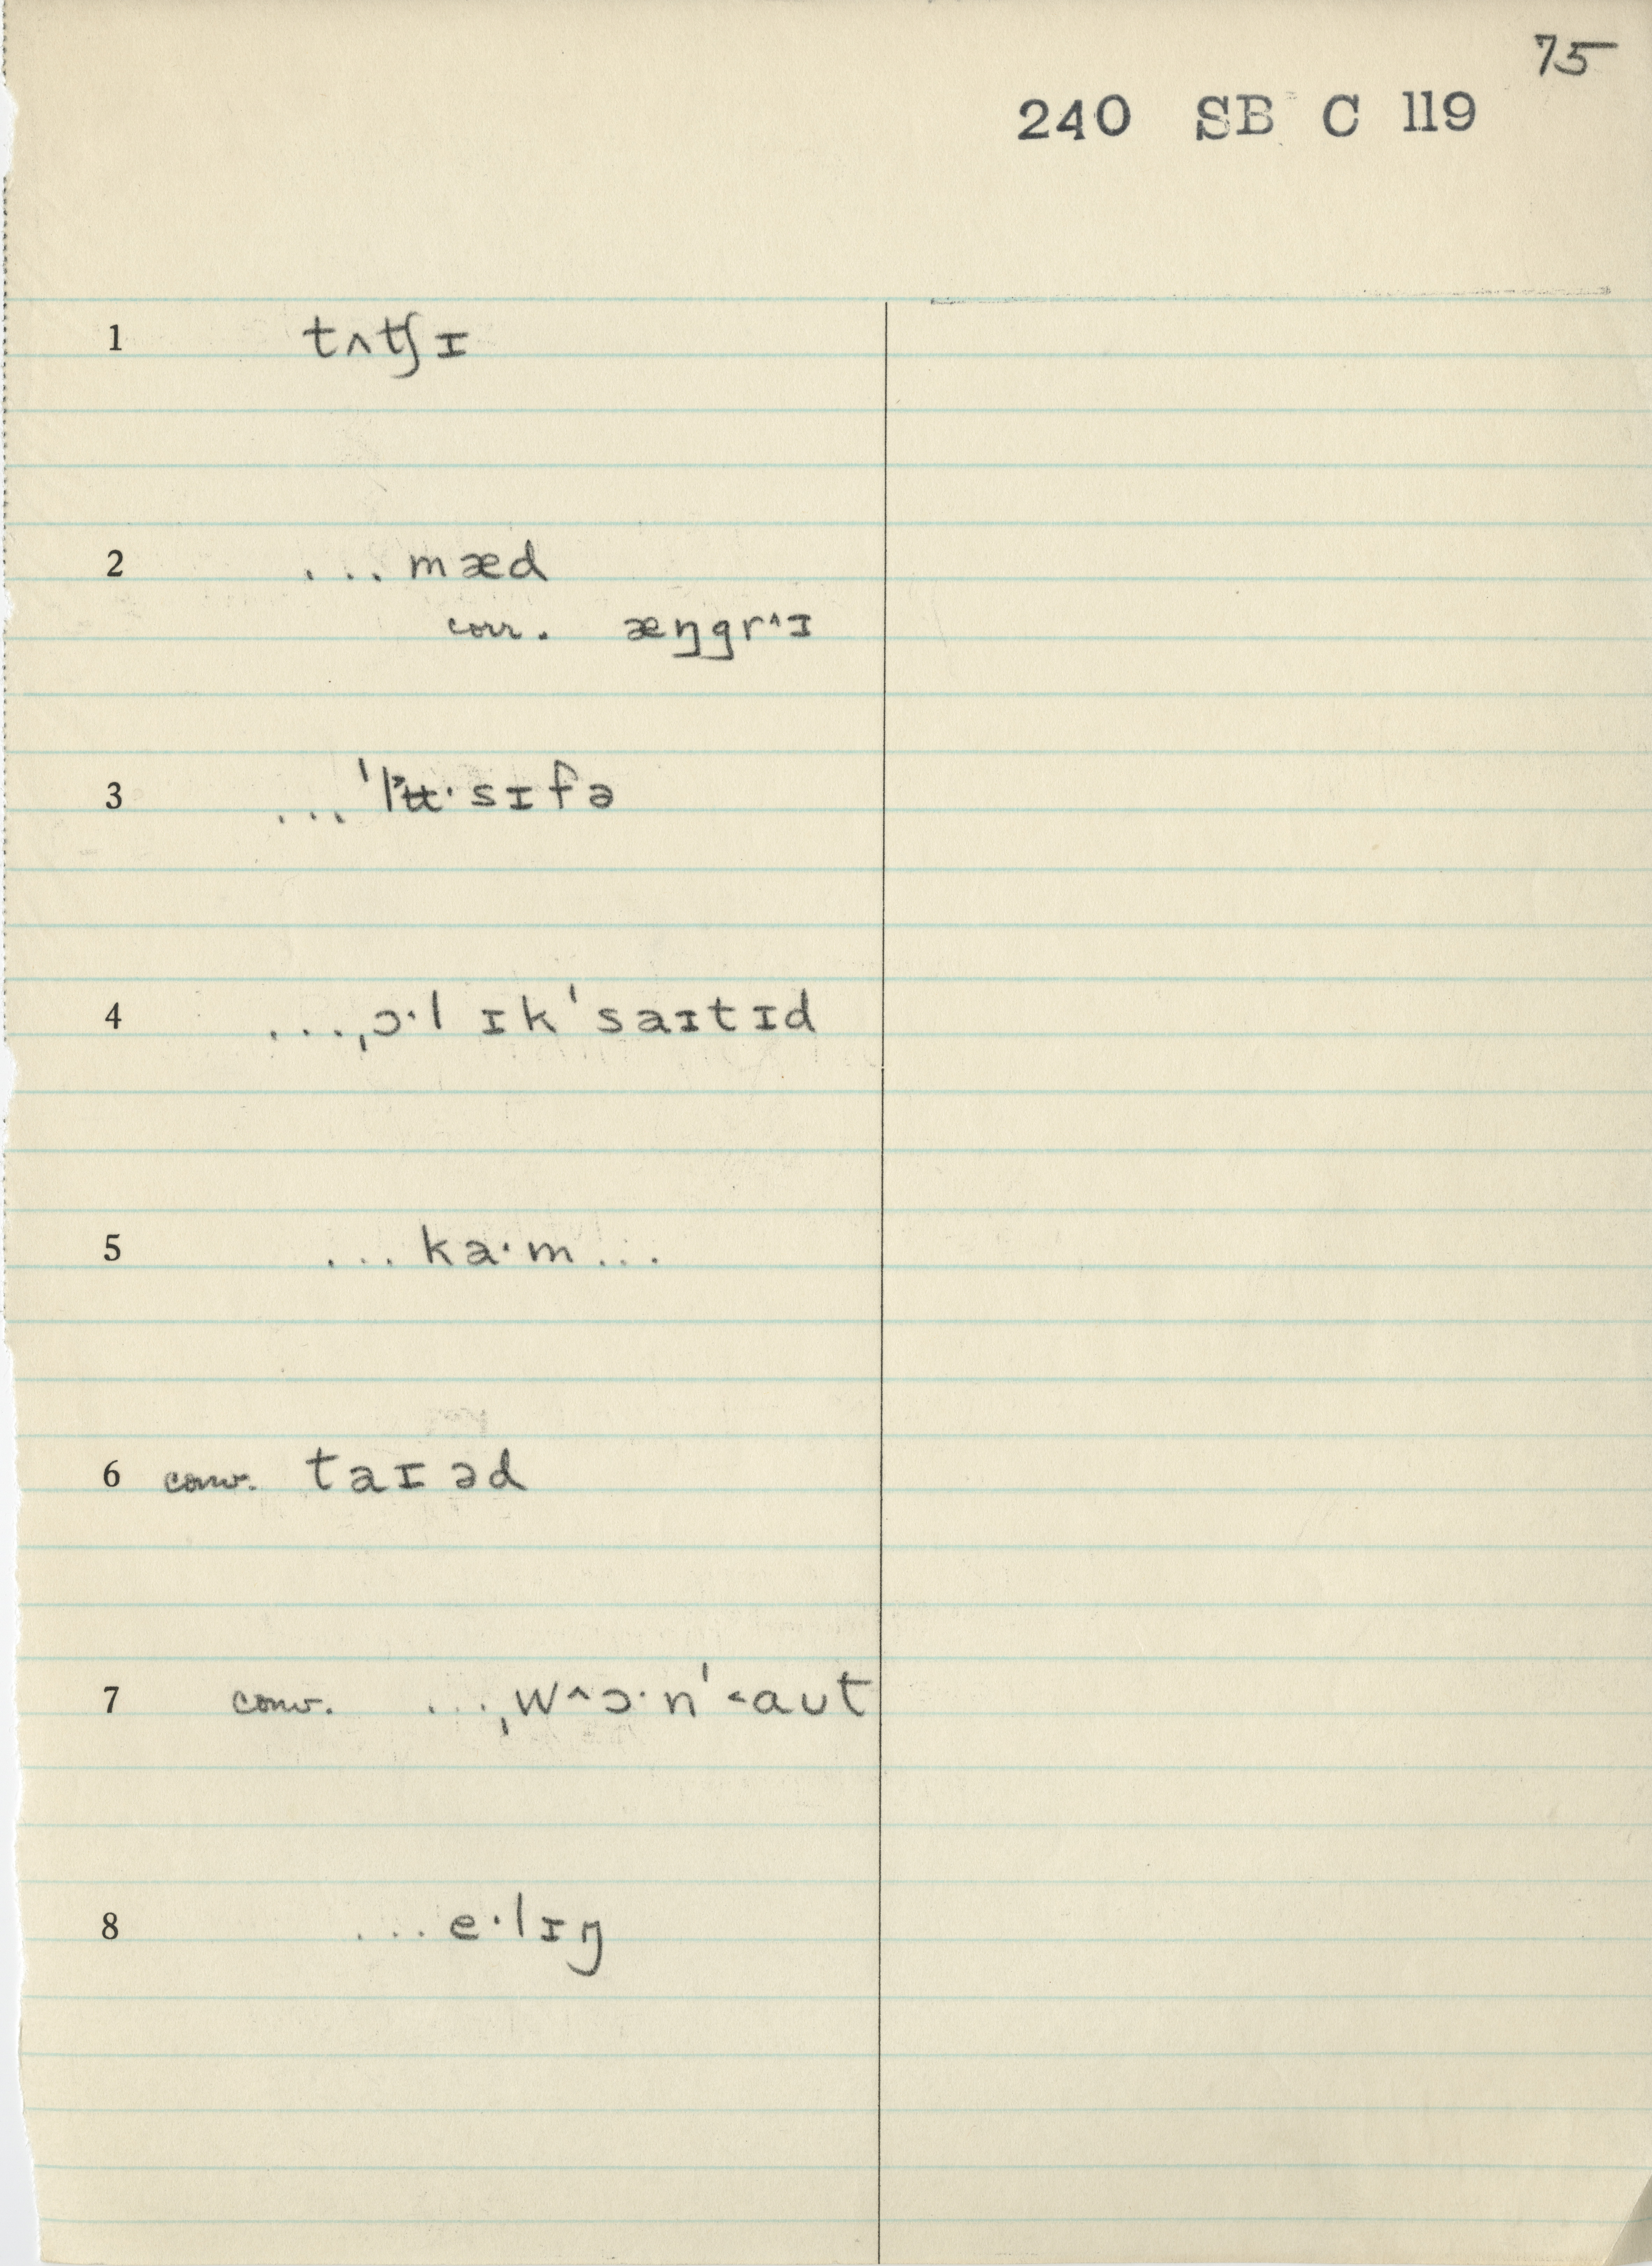 75
240 SB C 119
1 tʌʧɪ
2 ...mæd
corr. æŋgr^ɪ
3 ...ˈl˃ʉ·sɪfə
4 ...ˌɔ·l ɪkˈsaɪtɪd
5 ...ka·m...
6 conv. taɪəd
7 conv. ...ˌw^ɔ·nˈ˂aʊt
8 ...e·lɪŋ